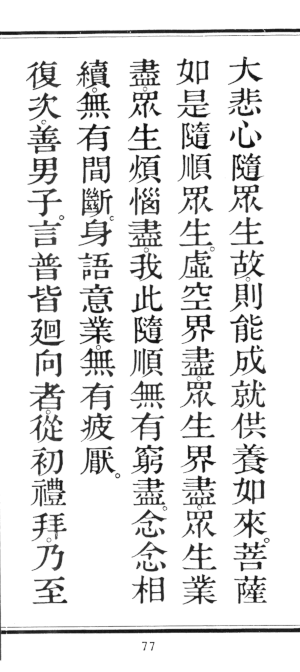 大悲心隨眾生故。則能成就供養如來。菩薩
如是隨順眾生。虛空界盡。眾生界盡。眾生業
盡。眾生煩惱盡。我此隨順無有窮盡。念念相
續。無有間斷。身語意業。無有疲厭。
復次。善男子。言普皆廻向者。從初禮拜。乃至
77